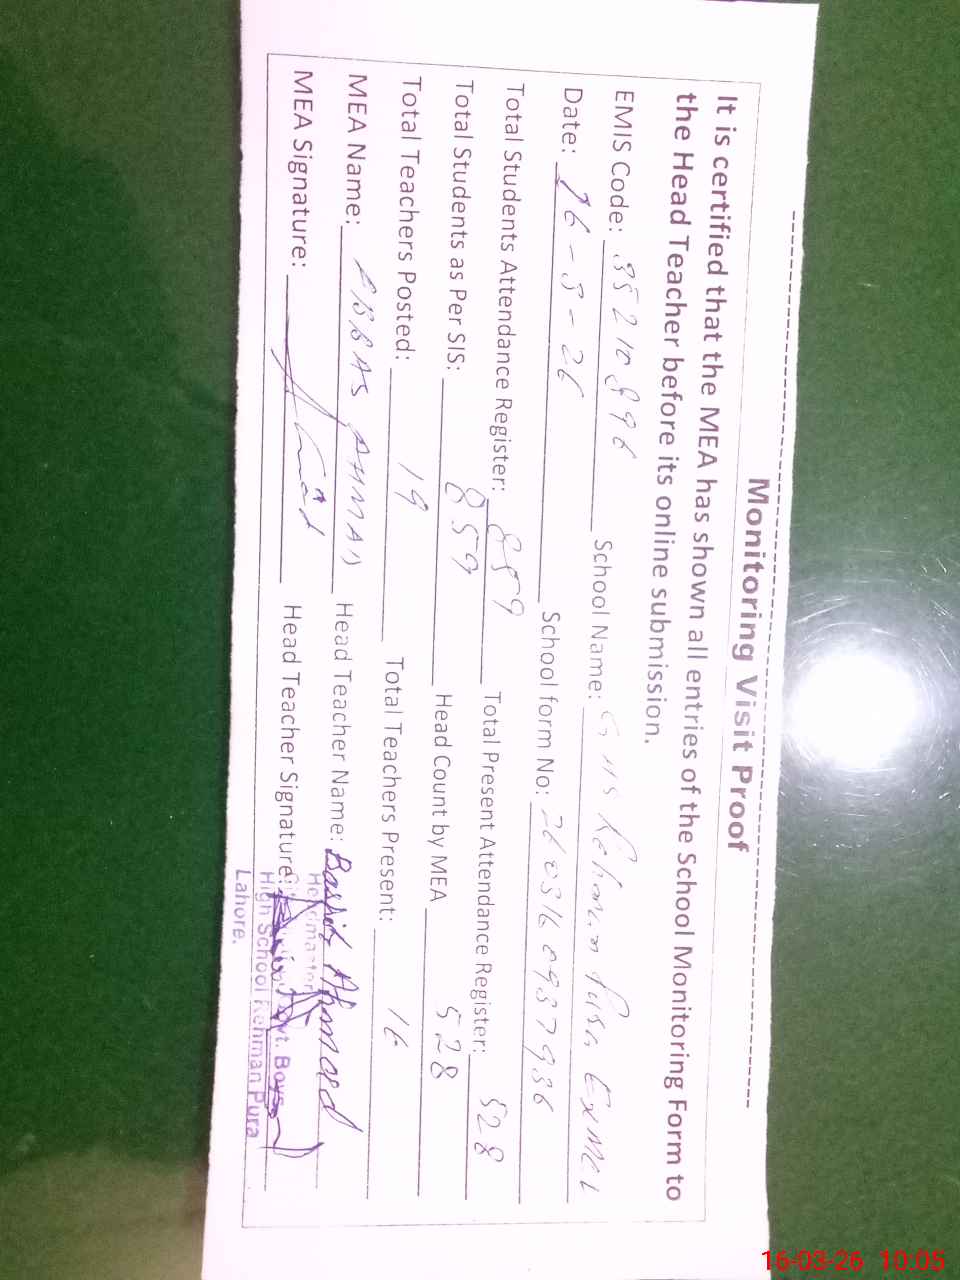 Monitoring Visit Proof
It is certified that the MEA has shown all entries of the School Monitoring Form to
the Head Teacher before its online submission.
EMIS Code: 35210896 School Name: GHS Rehman Pura Ex MCL
Date: 16-3-26 School form No:
Total Students Attendance Register: 859 Total Present Attendance Register: 528
Total Students as Per SIS: 859 Head Count by MEA 528
Total Teachers Posted: 19 Total Teachers Present: 16
MEA Name: ABBAS AHMAD Head Teacher Name: Bashir Ahmad
MEA Signature: Head Teacher Signature:
Headmaster
Govt. Boys
High School Rehman Pura
Lahore.
16-03-26 10:05